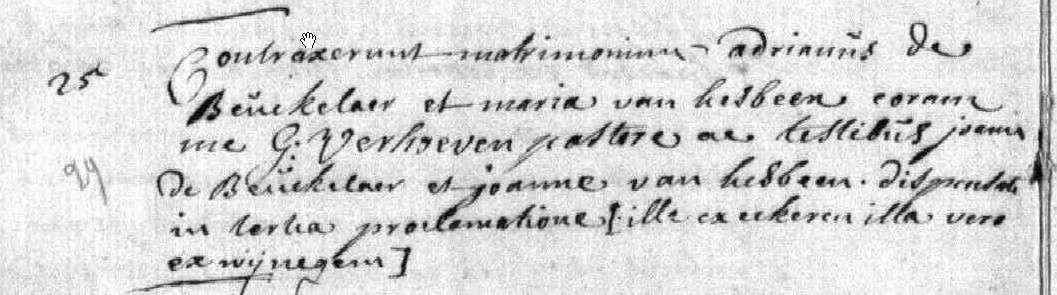 25 Contraxerunt matrimonium adrianus de
Beuckelaer et maria van hesbeen coram
me G. Verhoeven pastore ac testibus joanne
99 de Beuckelaer et joanne van hesbeen. dispensati
in tertia proclamatione [ille ex eckeren illa vero
ex wijnegem]